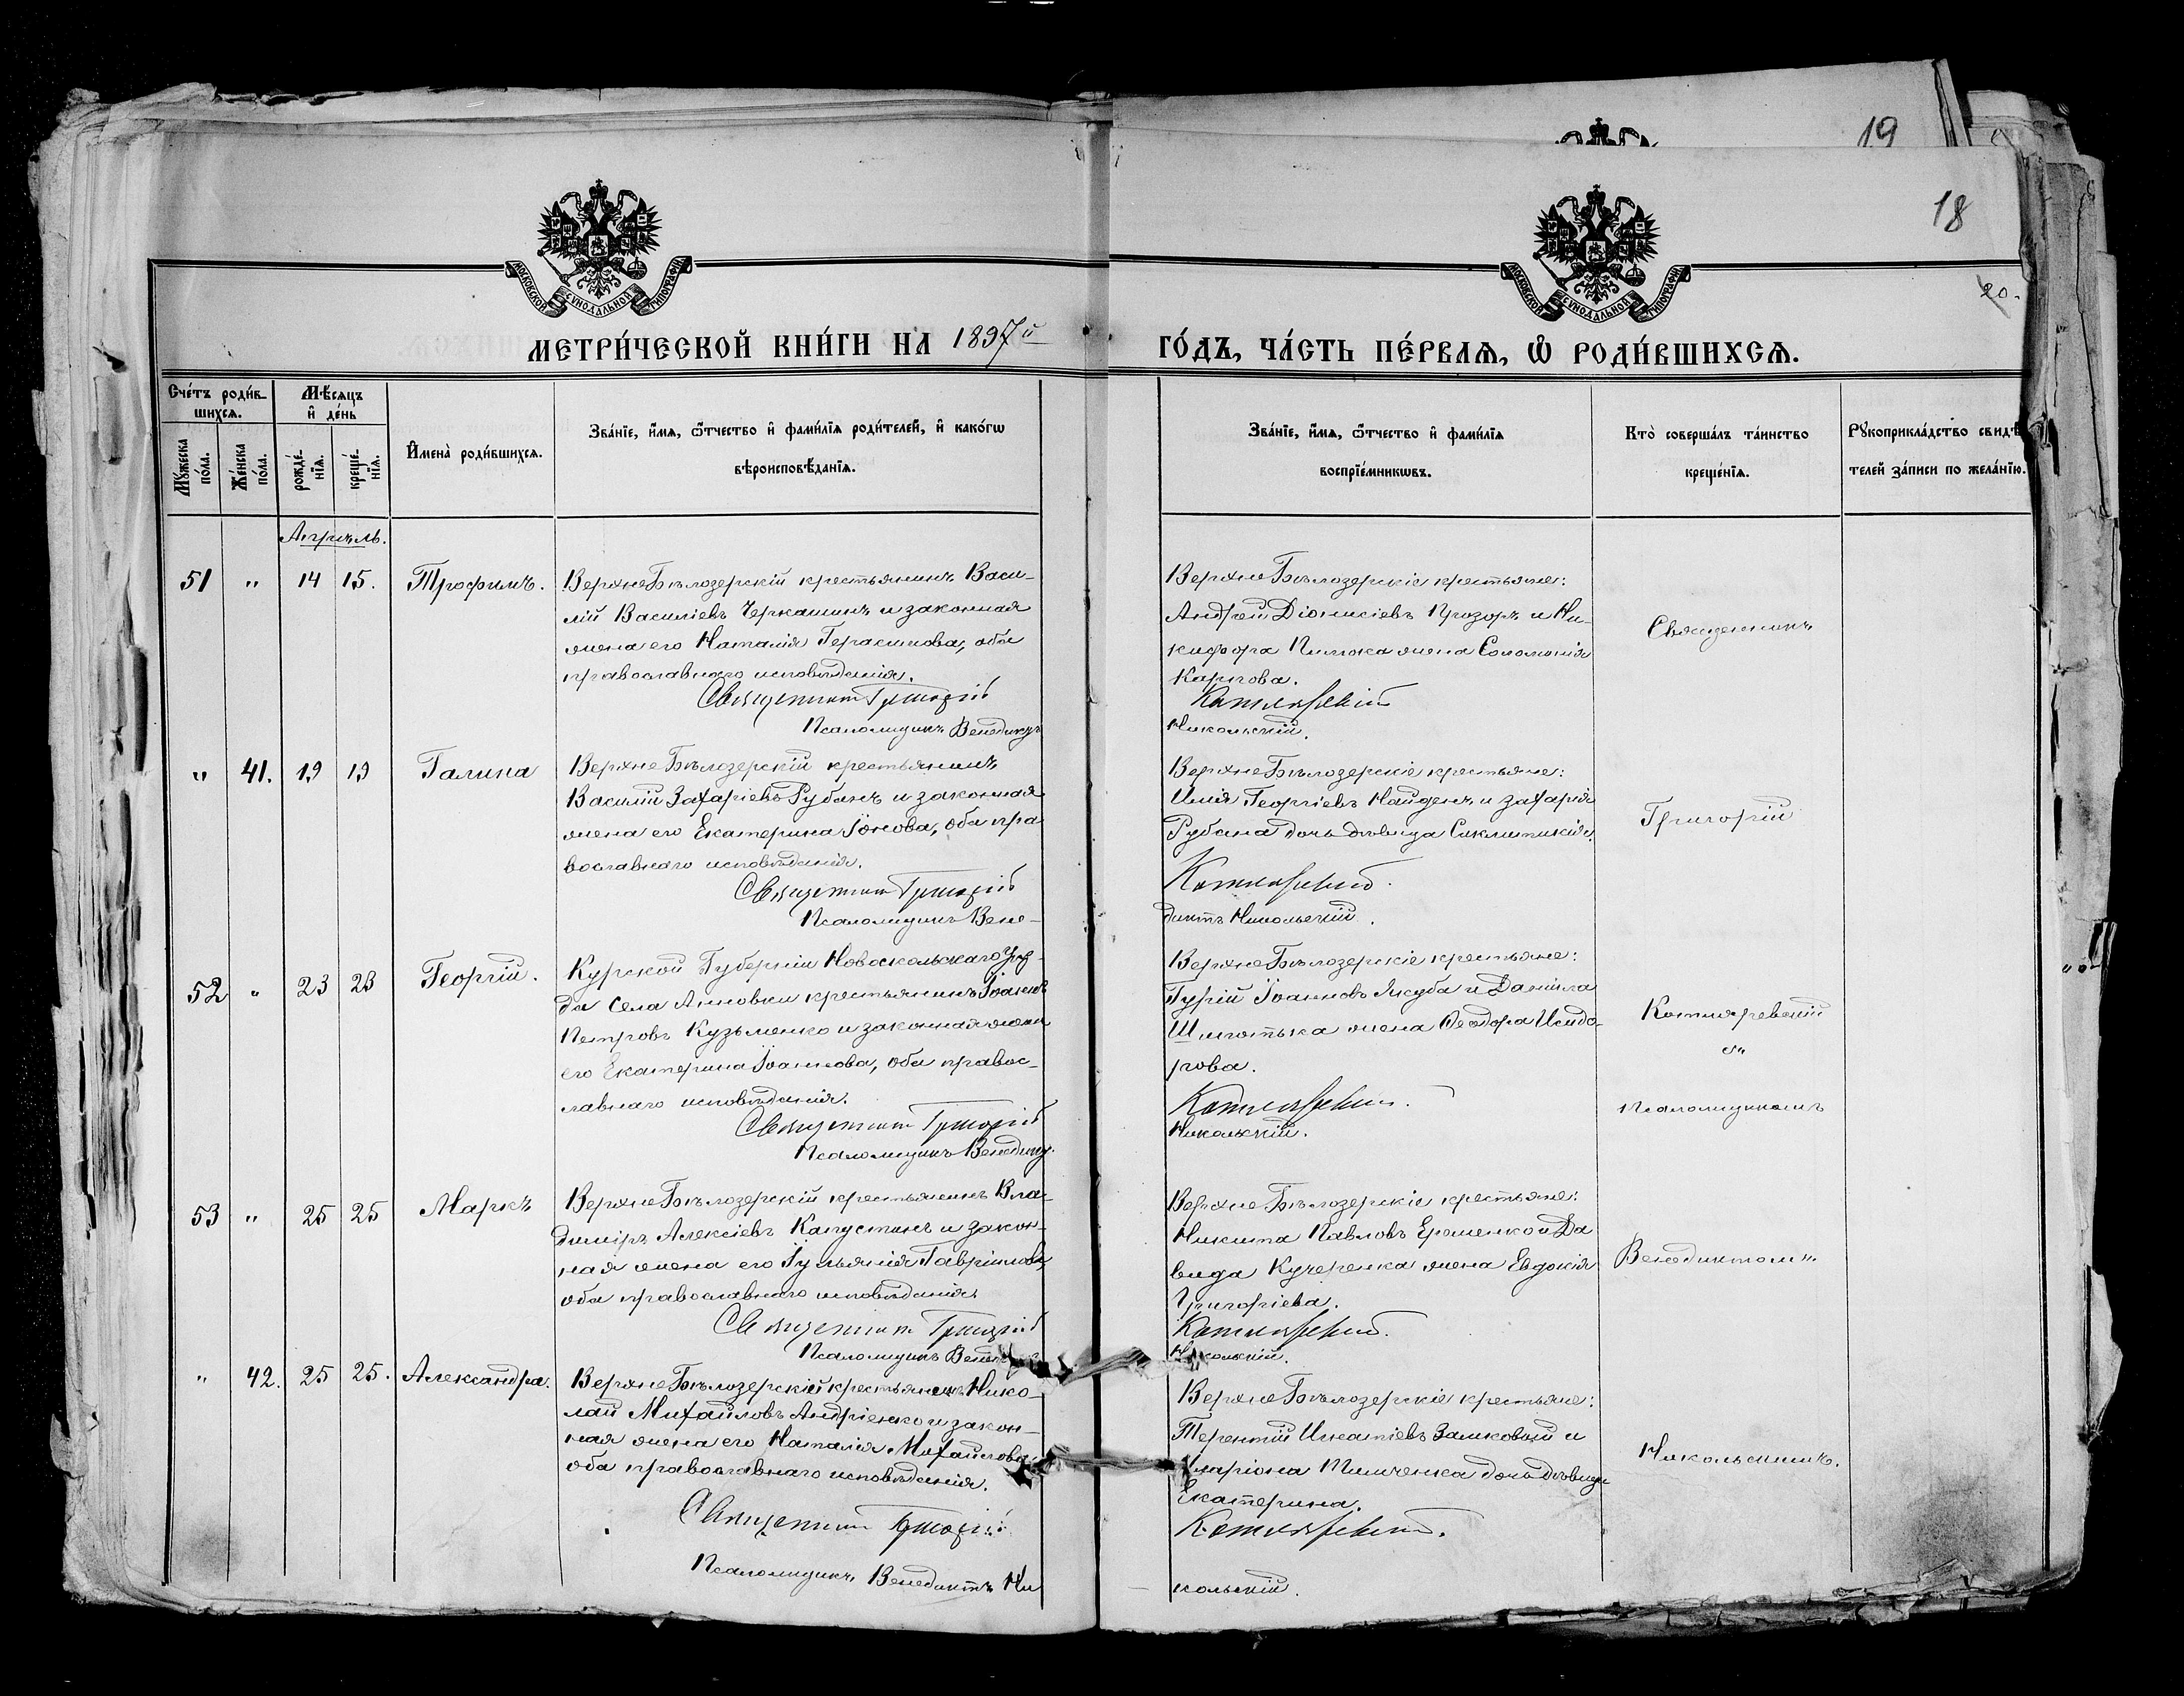 19
18
20.
МОСКОВСКОЙ СѴНОДАЛЬНОЙ ТИПОГРАФІИ
МОСКОВСКОЙ СѴНОДАЛЬНОЙ ТИПОГРАФІИ
МЕТРИ́ЧЕСКОЙ КНИ́ГИ НА 1897й
ГО́ДЪ, ЧА́СТЬ ПЕ́РВАѦ, Ѽ РОДИ́ВШИХСѦ.
Сче́тъ роди́в-
шихсѧ.
Мꙋ́жеска
по́ла.
Же́нска
по́ла.
Мѣ́сѧцъ
и҆ де́нь
рожде́-
нїѧ.
креще́-
нїѧ.
И҆мена̀ роди́вшихсѧ.
Зва́нїе, и҆́мѧ, ѻ҆́тчество и҆ фами́лїѧ роди́телей, и҆ како́гѡ
вѣроисповѣ́данїѧ.
Зва́нїе, и҆́мѧ, ѻ҆́тчество и҆ фами́лїѧ
воспрїе́мникѡвъ.
Кто̀ соверша́лъ та́инство
креще́нїѧ.
Рꙋкоприкла́дство свидѣ́
телей за́писи по жела́нїю.
Апрѣль.
51 " 14 15. Трофимъ.
ВерхнеБѣлозерскій крестьянинъ Васи-
лій Василіевъ Черкашинъ и законная
жена его Наталія Герасимова, оба
православнаго исповѣданія.
Священникъ Григорій
Псаломщикъ Венедиктъ
ВерхнеБѣлозерскіе крестьяне:
Андрей Діонисіевъ Прозоръ и Ни-
кифора жена Соломонія
Карпова.
Котляревскій
Никольскій.
Священникъ
" 41. 19 19 Галина
ВерхнеБѣлозерскій крестьянинъ
Василій Захаріевъ Рубанъ и законная
жена его Екатерина Іонова, оба пра
вославнаго исповѣданія.
Священникъ Григорій
Псаломщикъ Вене-
ВерхнеБѣлозерскіе крестьяне:
Илія Георгіевъ Найденъ и Захарія
Рубана дочь дѣвица Синклитикія.
Котляревскій.
диктъ Никольскій.
Григорій
52 " 23 23 Георгій.
Курской Губерніи Новоскольскаго Уѣз-
да села Анновки крестьянинъ Іоаннъ
Петровъ Кузьменко и законная жена
его Екатерина Іоаннова, оба правос-
лавнаго исповѣданія.
Священникъ Григорій
Псаломщикъ Венедиктъ
ВерхнеБѣлозерскіе крестьяне:
Гурій Іоанновъ Якуба и Даніила
жена Ѳеодора Исидо-
рова.
Котляревскій.
Никольскій.
Котляревскій
съ
псаломщикомъ
53 " 25 25 Маркъ
ВерхнеБѣлозерскій крестьянинъ Вла-
диміръ Алексіевъ Капустинъ и закон-
ная жена его Іульянія Гавріилова,
оба православнаго исповѣданія
Священникъ Григорій
Псаломщикъ
ВерхнеБѣлозерскіе крестьяне:
Никита Павловъ Ерошенко и Да
вида Кучеренка жена Евдокія
Григоріева.
Котляревскій.
Никольскій.
Венедиктомъ
" 42. 25 25. Александра.
ВерхнеБѣлозерскій крестьянинъ Нико-
лай Михайловъ Андріенко и закон-
ная жена его Наталія Михайлова,
оба православнаго исповѣданія.
Священникъ Григорій
Псаломщикъ Венедиктъ Ни
ВерхнеБѣлозерскіе крестьяне:
Терентій Игнатіевъ Замковой и
Иларіона Тимченка дочь дѣвица
Екатерина.
Котляревскій.
кольскій.
Никольскимъ.